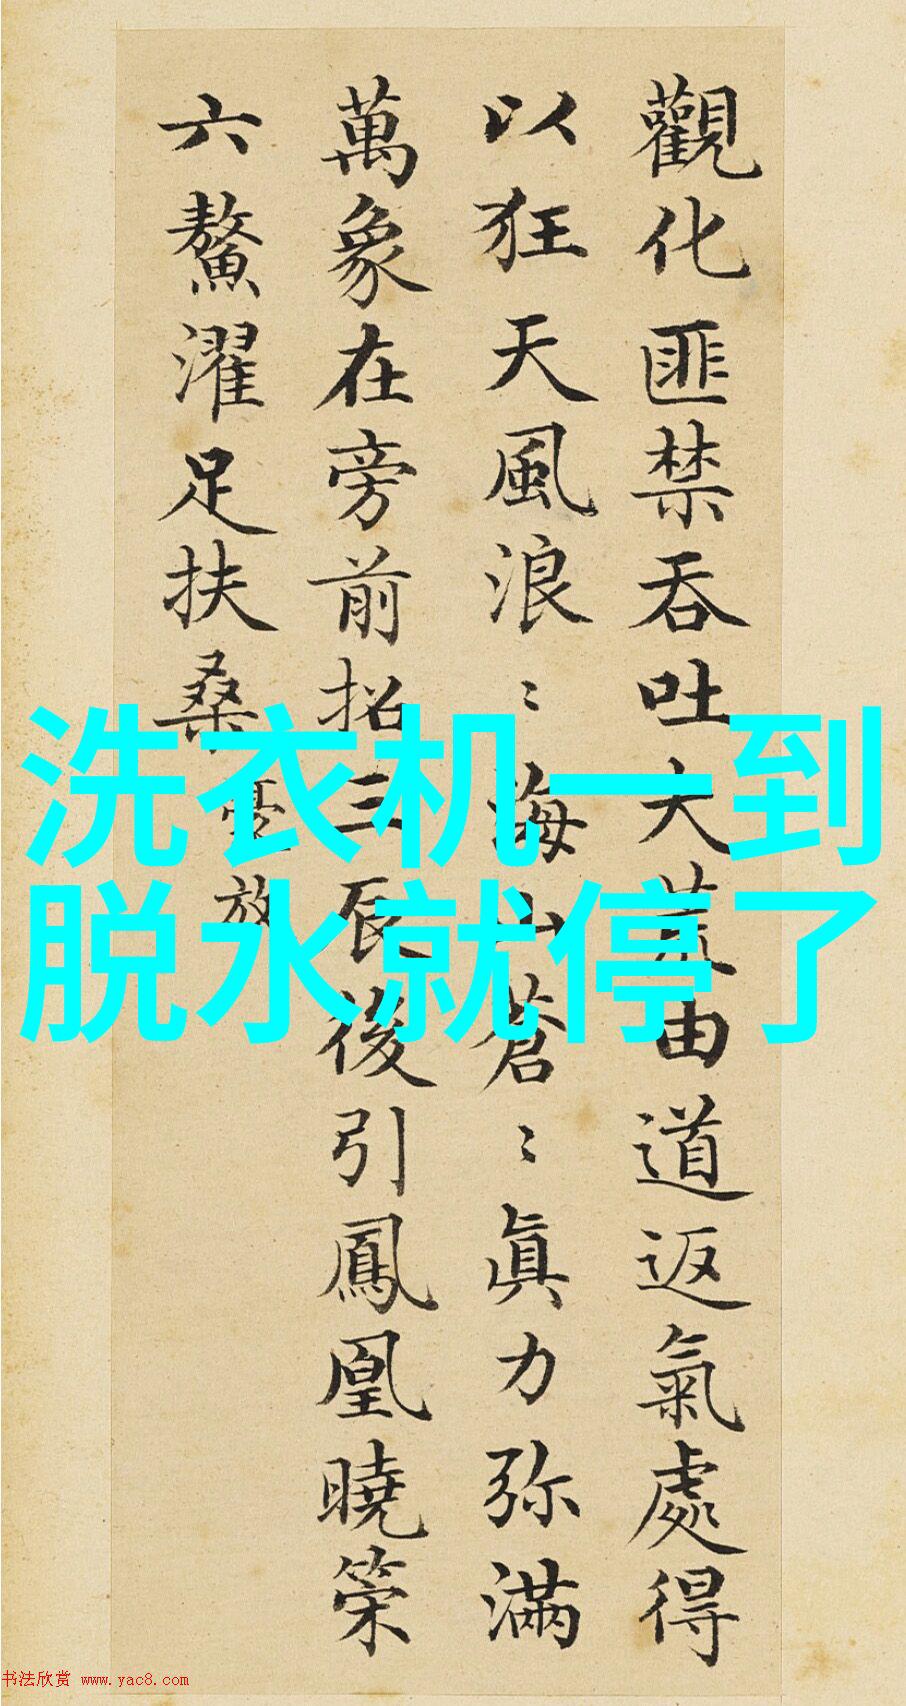 觀化匪禁吞吐大荒由道返氣處得
以狂天風浪〻海山蒼〻眞力弥滿
萬象在旁前招三辰後引鳳凰曉策
六鰲濯足扶桑
豪放
洗衣机一到
脱水就停了
书法欣赏 www.yac8.com